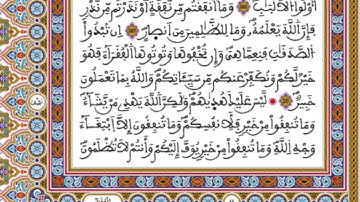 أُوْلُوا۟ ٱلْأَلْبَٰبِ وَمَآ أَنفَقْتُم مِّن نَّفَقَةٍ أَوْ نَذَرْتُم مِّن نَّذْرٍ
فَإِنَّ ٱللَّهَ يَعْلَمُهُۥ وَمَا لِلظَّٰلِمِينَ مِنْ أَنصَارٍ إِن تُبْدُوا۟
ٱلصَّدَقَٰتِ فَنِعِمَّا هِىَ وَإِن تُخْفُوهَا وَتُؤْتُوهَا ٱلْفُقَرَآءَ فَهُوَ
خَيْرٌ لَّكُمْ وَنُكَفِّرْ عَنكُم مِّن سَيِّـَٔاتِكُمْ وَٱللَّهُ بِمَا تَعْمَلُونَ
خَبِيرٌ لَّيْسَ عَلَيْكَ هُدَىٰهُمْ وَلَٰكِنَّ ٱللَّهَ يَهْدِى مَن يَشَآءُ
وَمَا تُنفِقُوا۟ مِنْ خَيْرٍ فَلِأَنفُسِكُمْ وَمَا تُنفِقُونَ إِلَّا ٱبْتِغَآءَ
وَجْهِ ٱللَّهِ وَمَا تُنفِقُوا۟ مِنْ خَيْرٍ يُوَفَّ إِلَيْكُمْ وَأَنتُمْ لَا تُظْلَمُونَ